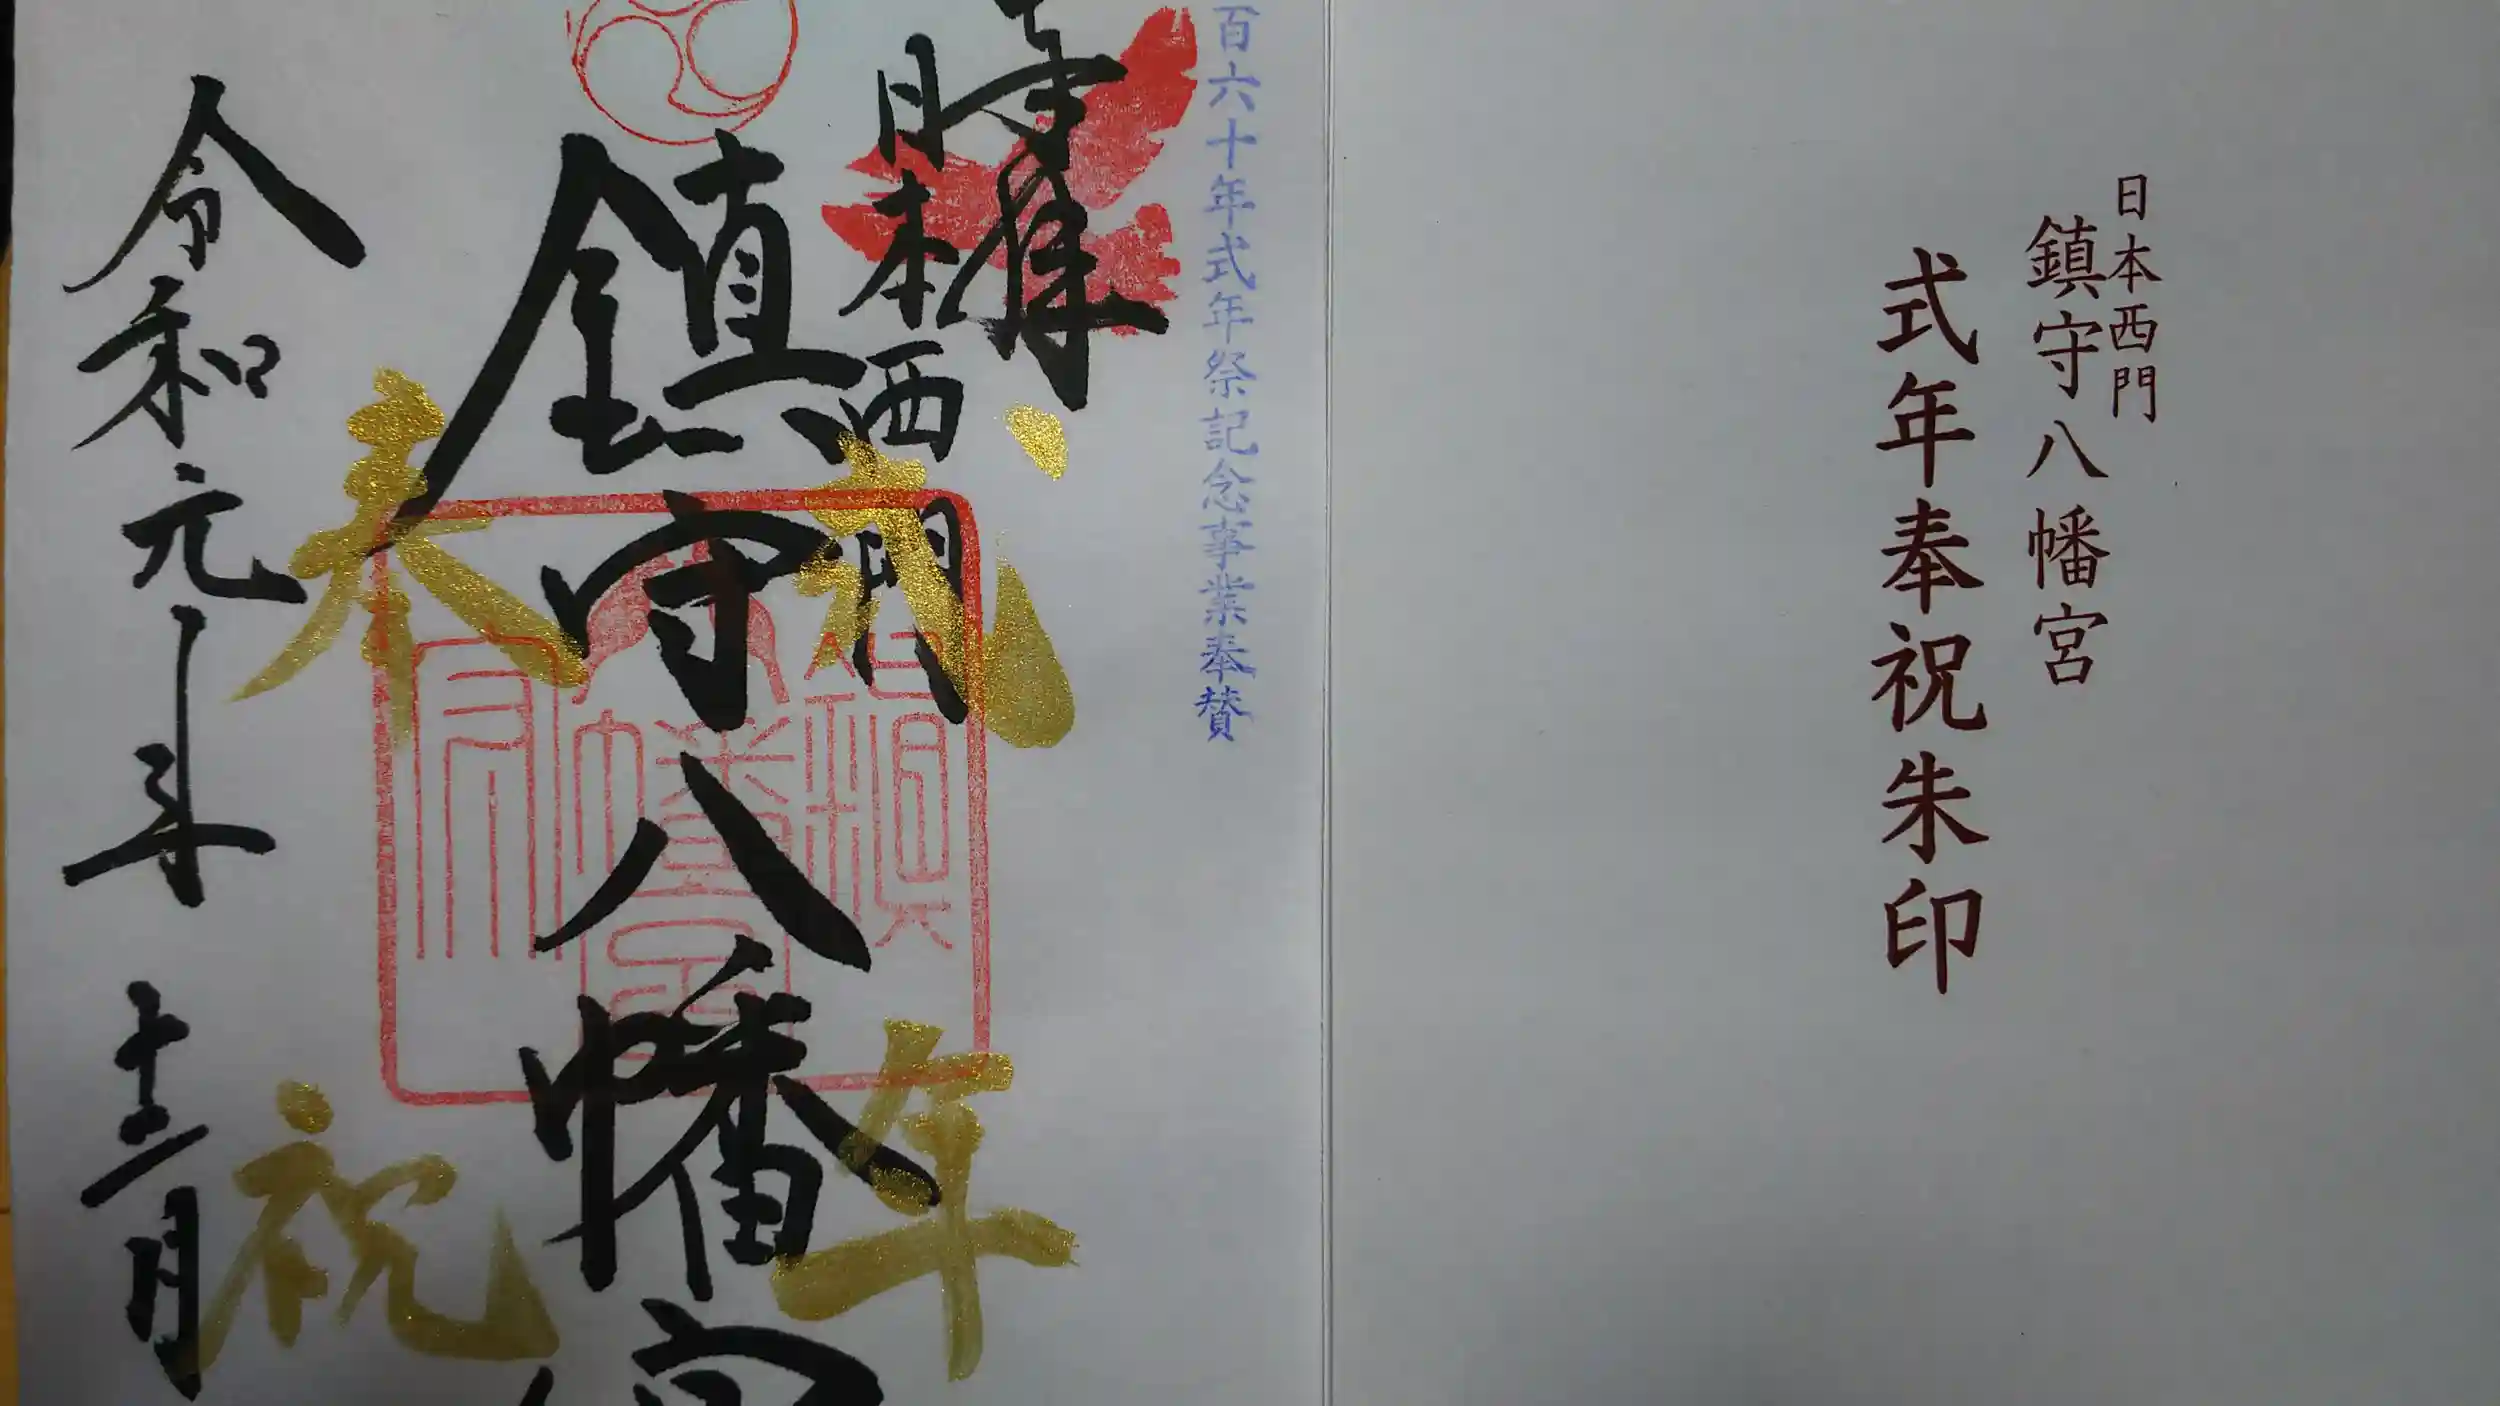 日本西門
鎮守八幡宮
式年奉祝朱印
百六十年式年祭記念事業奉賛
奉拝
日本西門
鎮守八幡宮
式年
奉祝
令和元年十二月